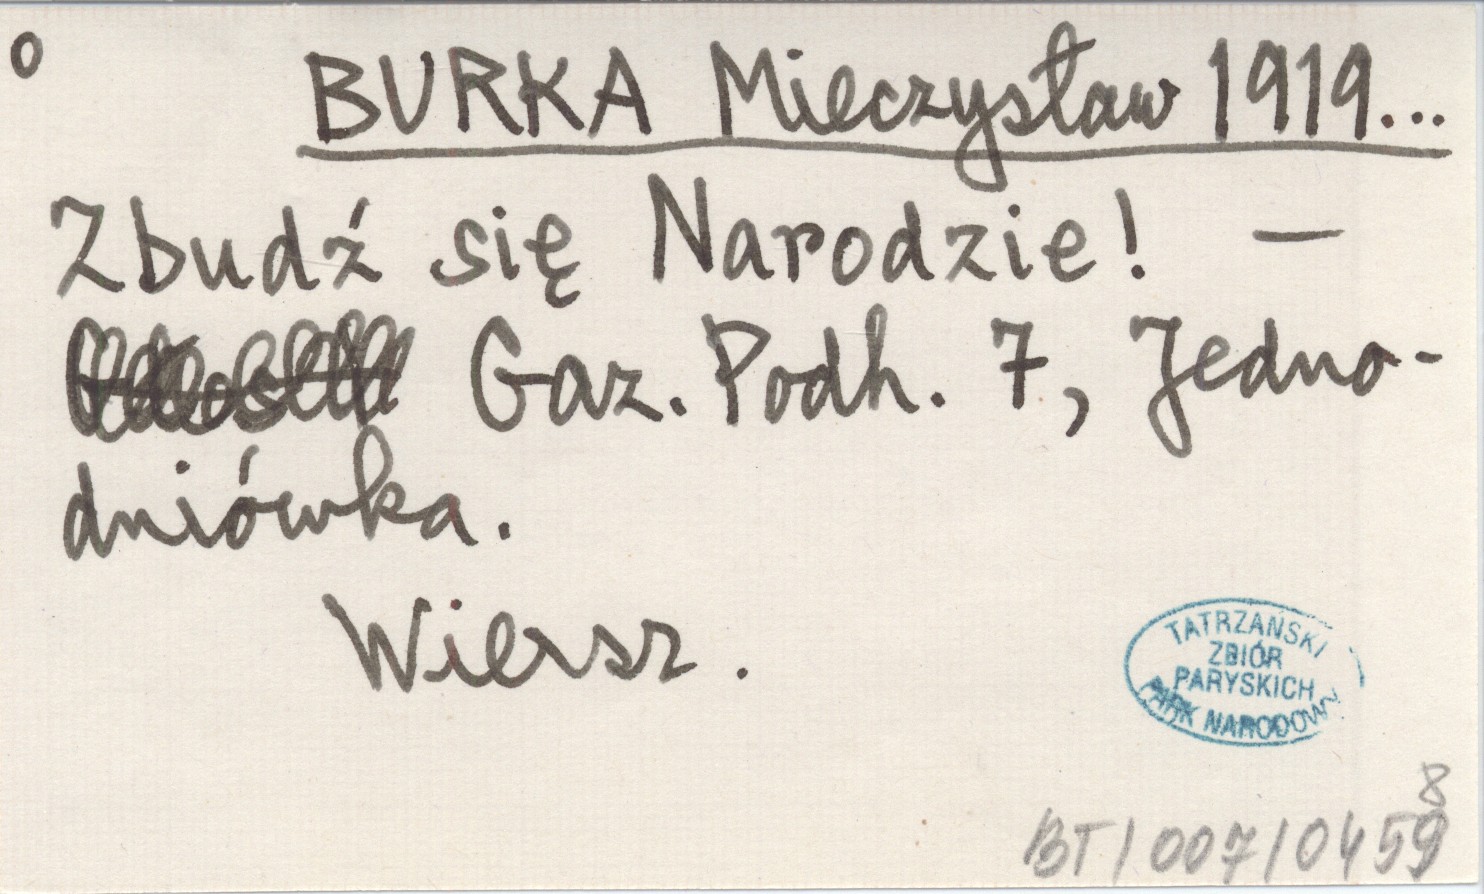 o
BURKA Mieczysław 1919...
Zbudź się Narodzie! —
Gaz. Podh. 7, Jedno-
dniówka.
Wiersz.
TATRZAŃSKI
ZBIÓR
PARYSKICH
PARK NARODOWY
8
BT/007/0459